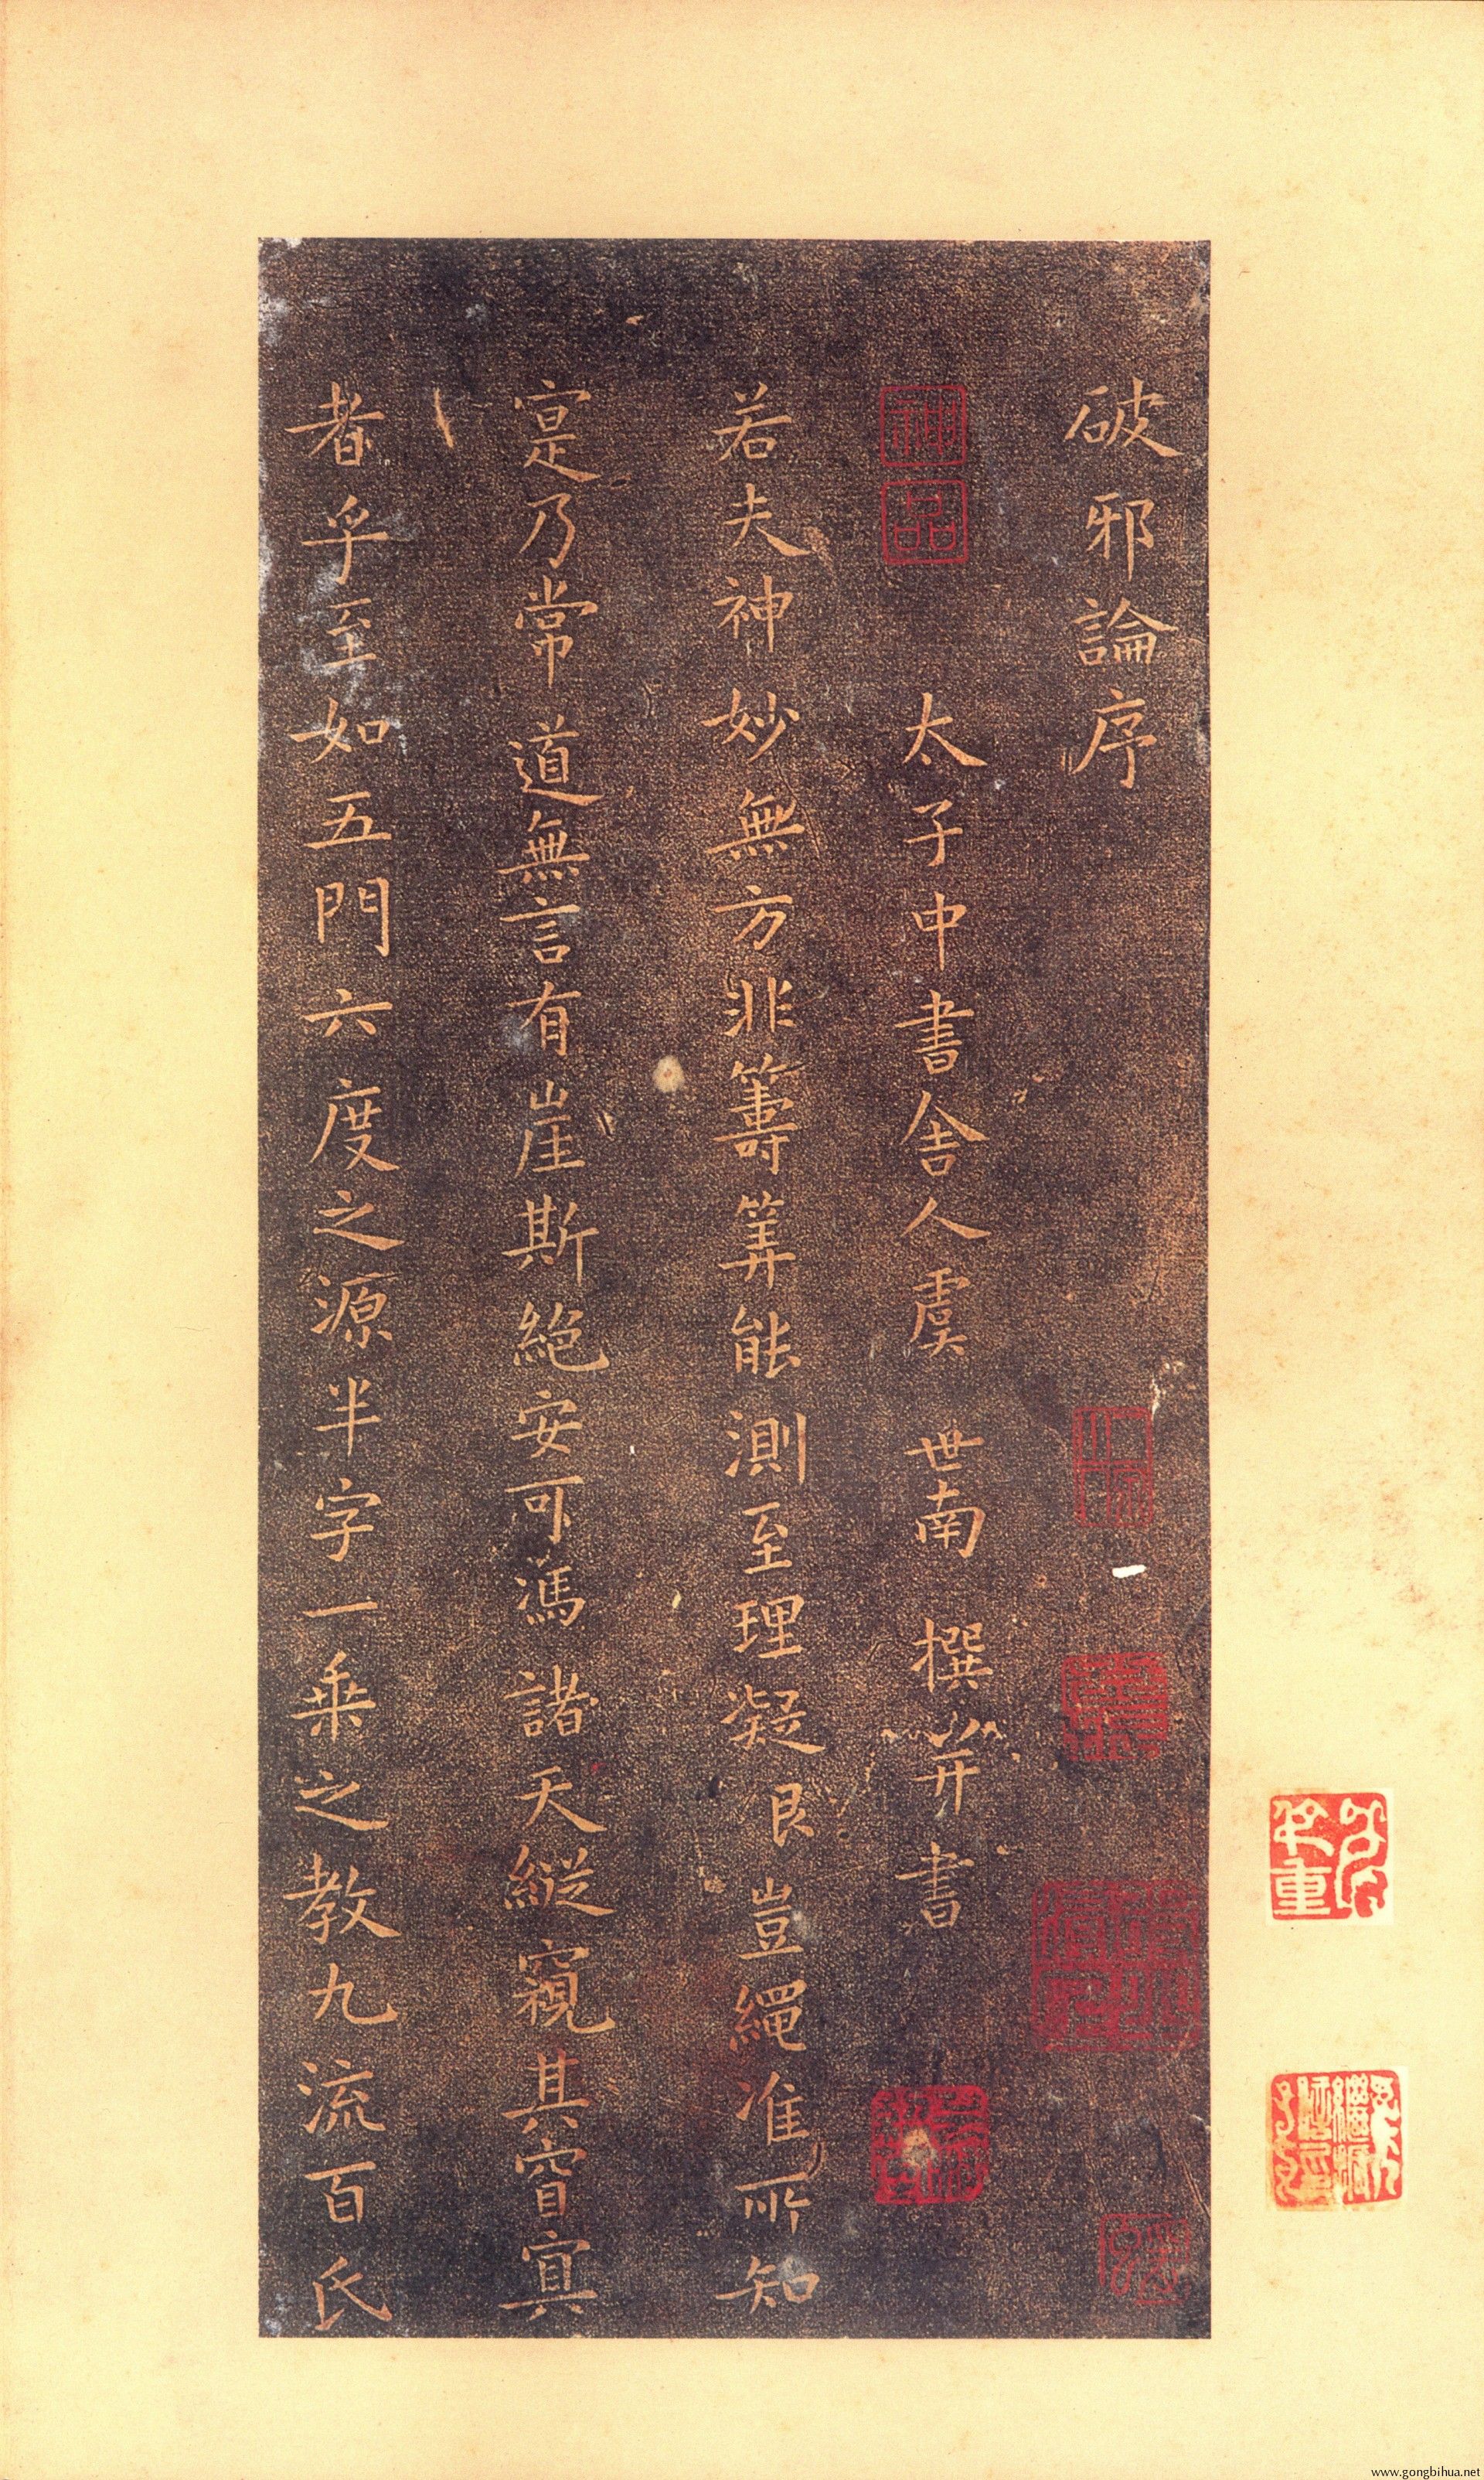 破邪論序
太子中書舍人虞世南撰并書
若夫神妙無方非籌筭能測至理凝𥌓豈繩准所知
寔乃常道無言有崖斯絕安可馮諸天縱窺其窅寘
者乎至如五門六度之源半字一乘之教九流百氏
神品
www.gongbihua.net